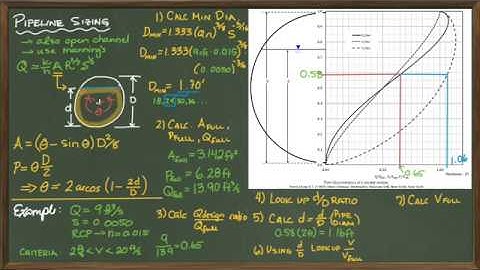 PIPELINE SIZING
→ also open channel
→ use manning's
Q = k/n A R^2/3 S^1/2
d
D
θ
A = (θ - sin θ) D²/8
P = θ D/2
⇒ θ = 2 arccos (1 - 2d/D)
Example:
Q = 9 ft³/s
S = 0.0050
RCP → n = 0.015
CRITERIA
1) CALC MIN DIA.
D min = 1.333 (Qn)^3/8 S^-3/16
D min = 1.333 (9 · 0.015)^3/8
(0.0050)^-3/16
D min = 1.70'
2) CALC. A FULL,
P FULL, Q FULL
A full = 3.142 ft²
P full = 6.28 ft
Q full = 13.90 ft³/s
3) CALC Q design / Q full ratio
9 / 13.9 = 0.65
0.58
0.65
1.06
4) LOOK UP d/D RATIO
5) CALC d = d/D (PIPE DIAM)
0.58 (2ft) = 1.16 ft
6) USING d/D LOOKUP V/V FULL
7) CALC V FULL